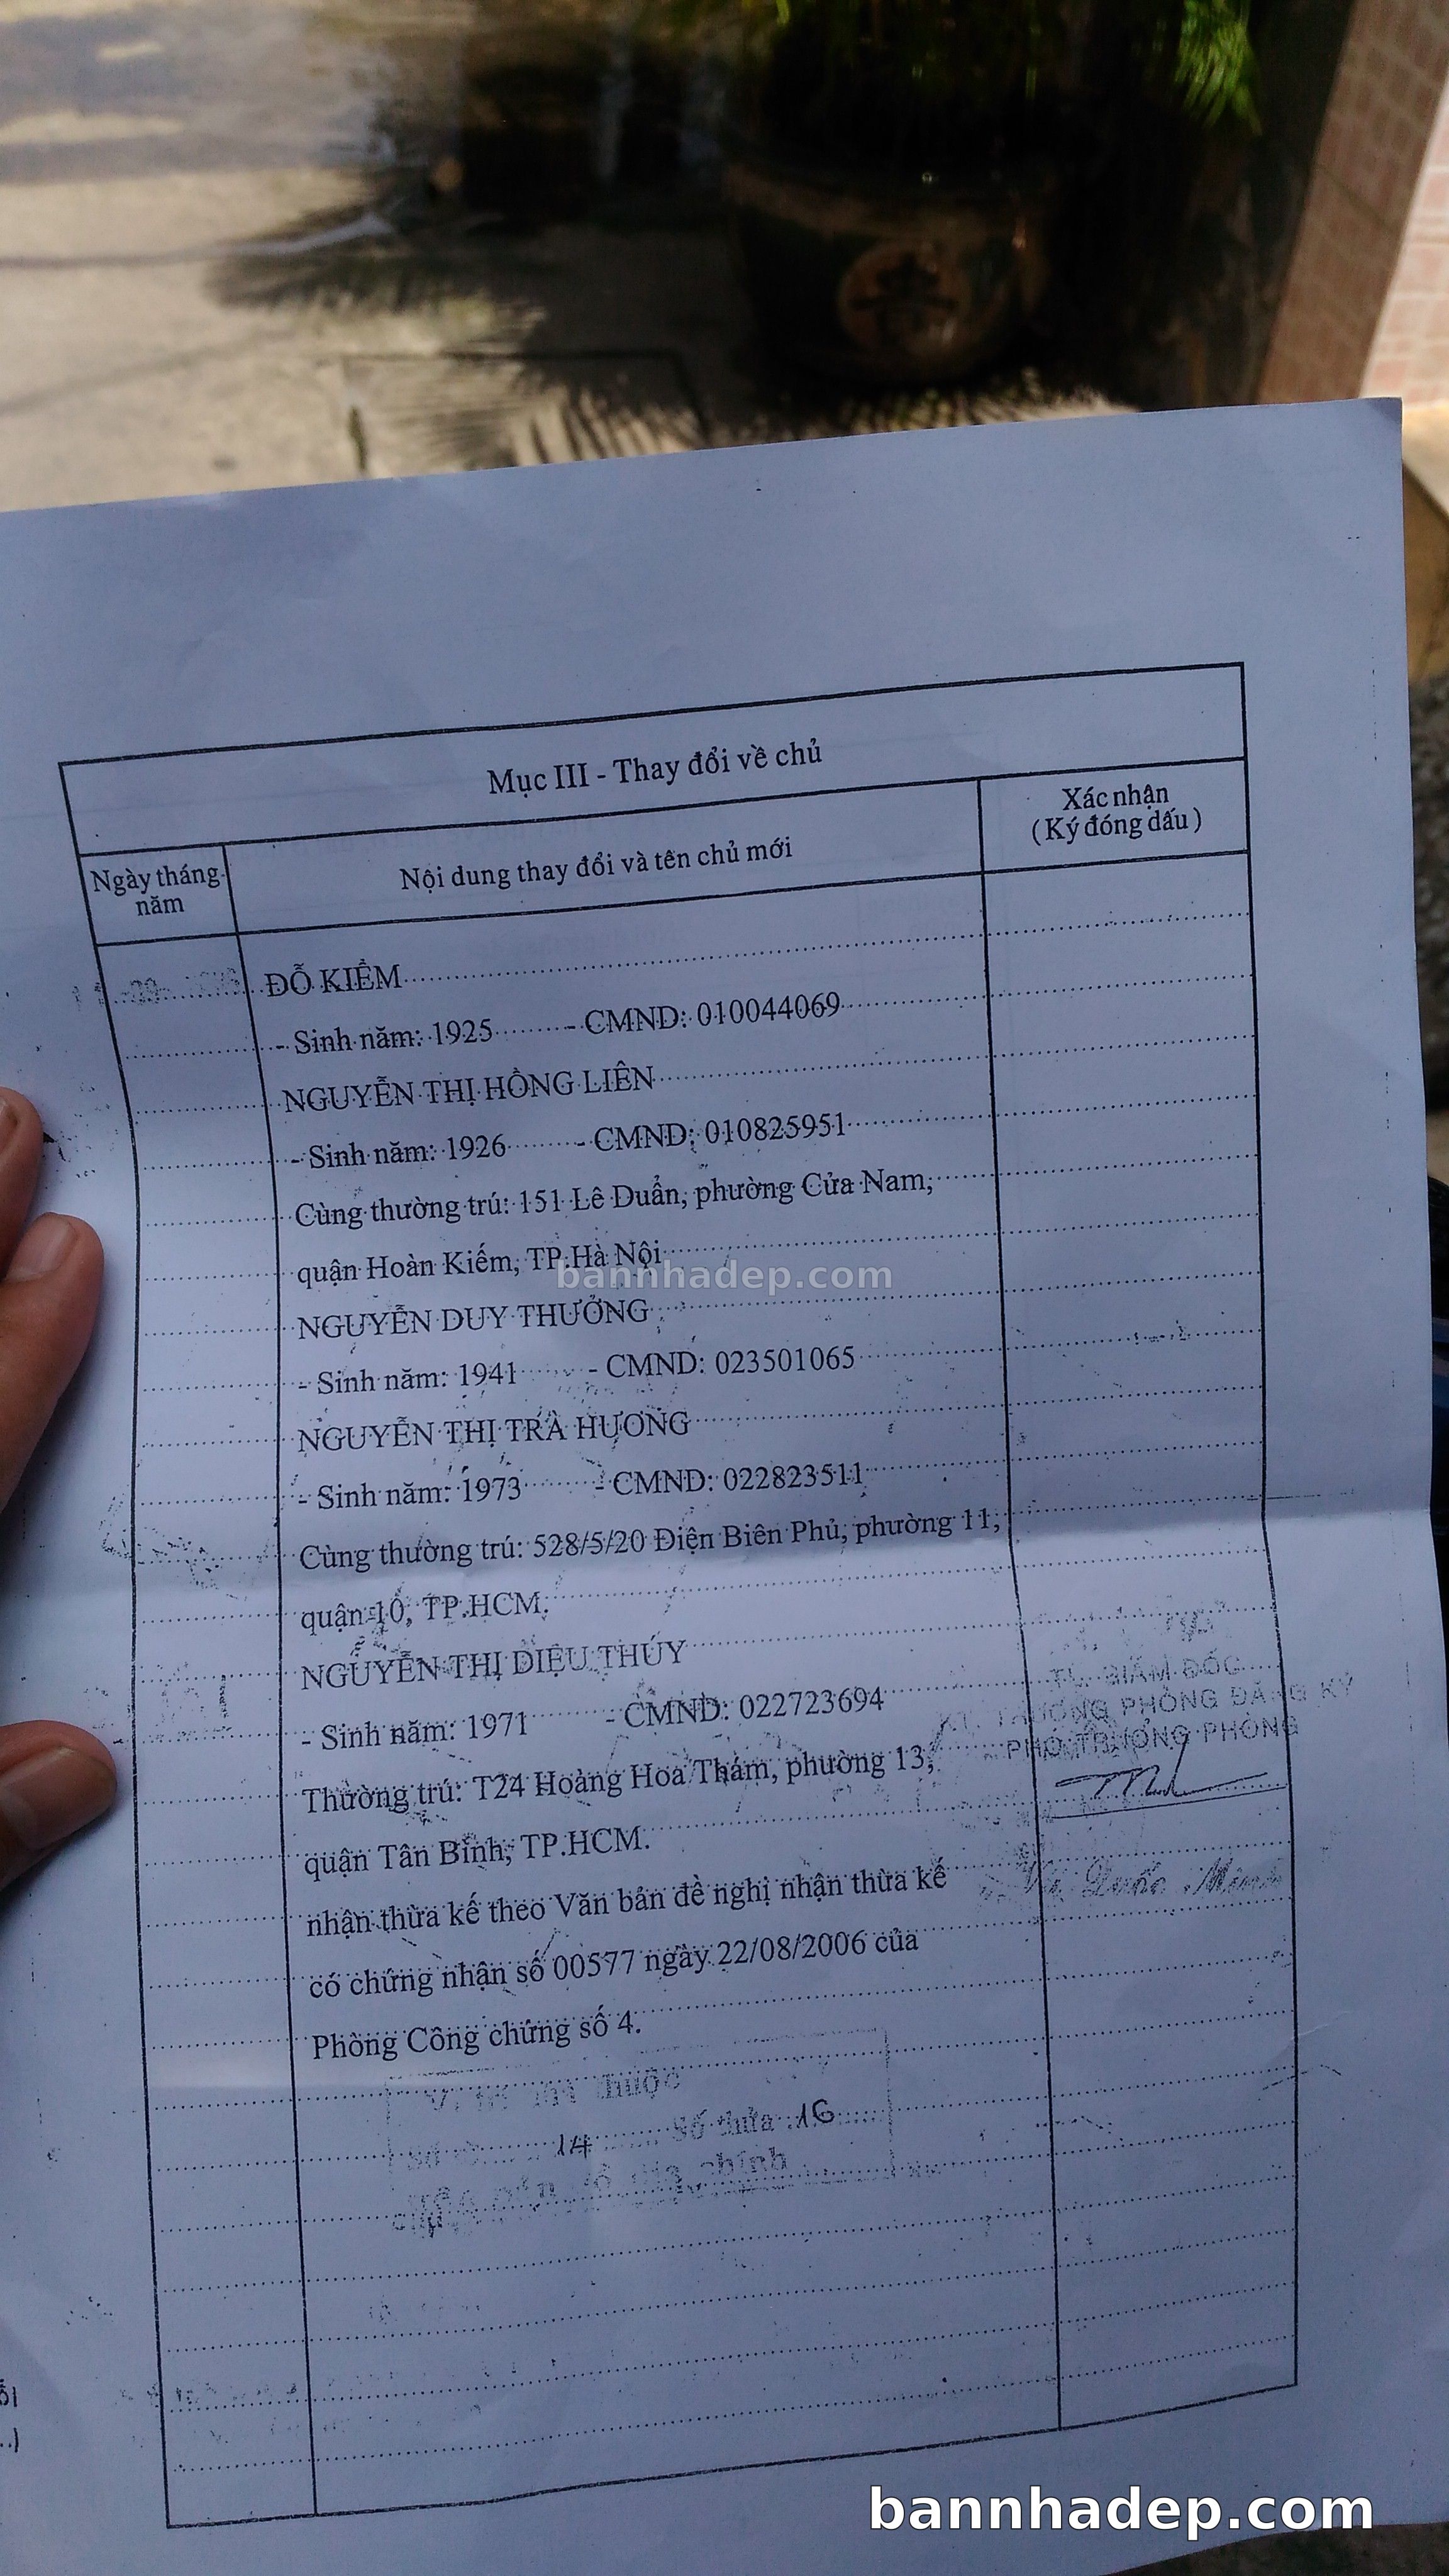 Mục III - Thay đổi về chủ
Ngày tháng năm
Nội dung thay đổi và tên chủ mới
Xác nhận
( Ký đóng dấu )
ĐỖ KIỂM
- Sinh năm: 1925 - CMND: 010044069
NGUYỄN THỊ HỒNG LIÊN
- Sinh năm: 1926 - CMND: 010825951
Cùng thường trú: 151 Lê Duẩn, phường Cửa Nam,
quận Hoàn Kiếm, TP.Hà Nội
bannhadep.com
NGUYỄN DUY THƯỞNG
- Sinh năm: 1941 - CMND: 023501065
NGUYỄN THỊ TRÀ HƯƠNG
- Sinh năm: 1973 - CMND: 022823511
Cùng thường trú: 528/5/20 Điện Biên Phủ, phường 11,
quận 10, TP.HCM.
NGUYỄN THỊ DIỆU THÚY
- Sinh năm: 1971 - CMND: 022723694
TL. GIÁM ĐỐC
KT. TRƯỞNG PHÒNG ĐĂNG KÝ
PHÓ TRƯỞNG PHÒNG
Thường trú: T24 Hoàng Hoa Thám, phường 13,
quận Tân Bình, TP.HCM.
nhận thừa kế theo Văn bản đề nghị nhận thừa kế
Quốc Minh
có chứng nhận số 00577 ngày 22/08/2006 của
Phòng Công chứng số 4.
thuộc
14 Số thửa 16
chính
bannhadep.com